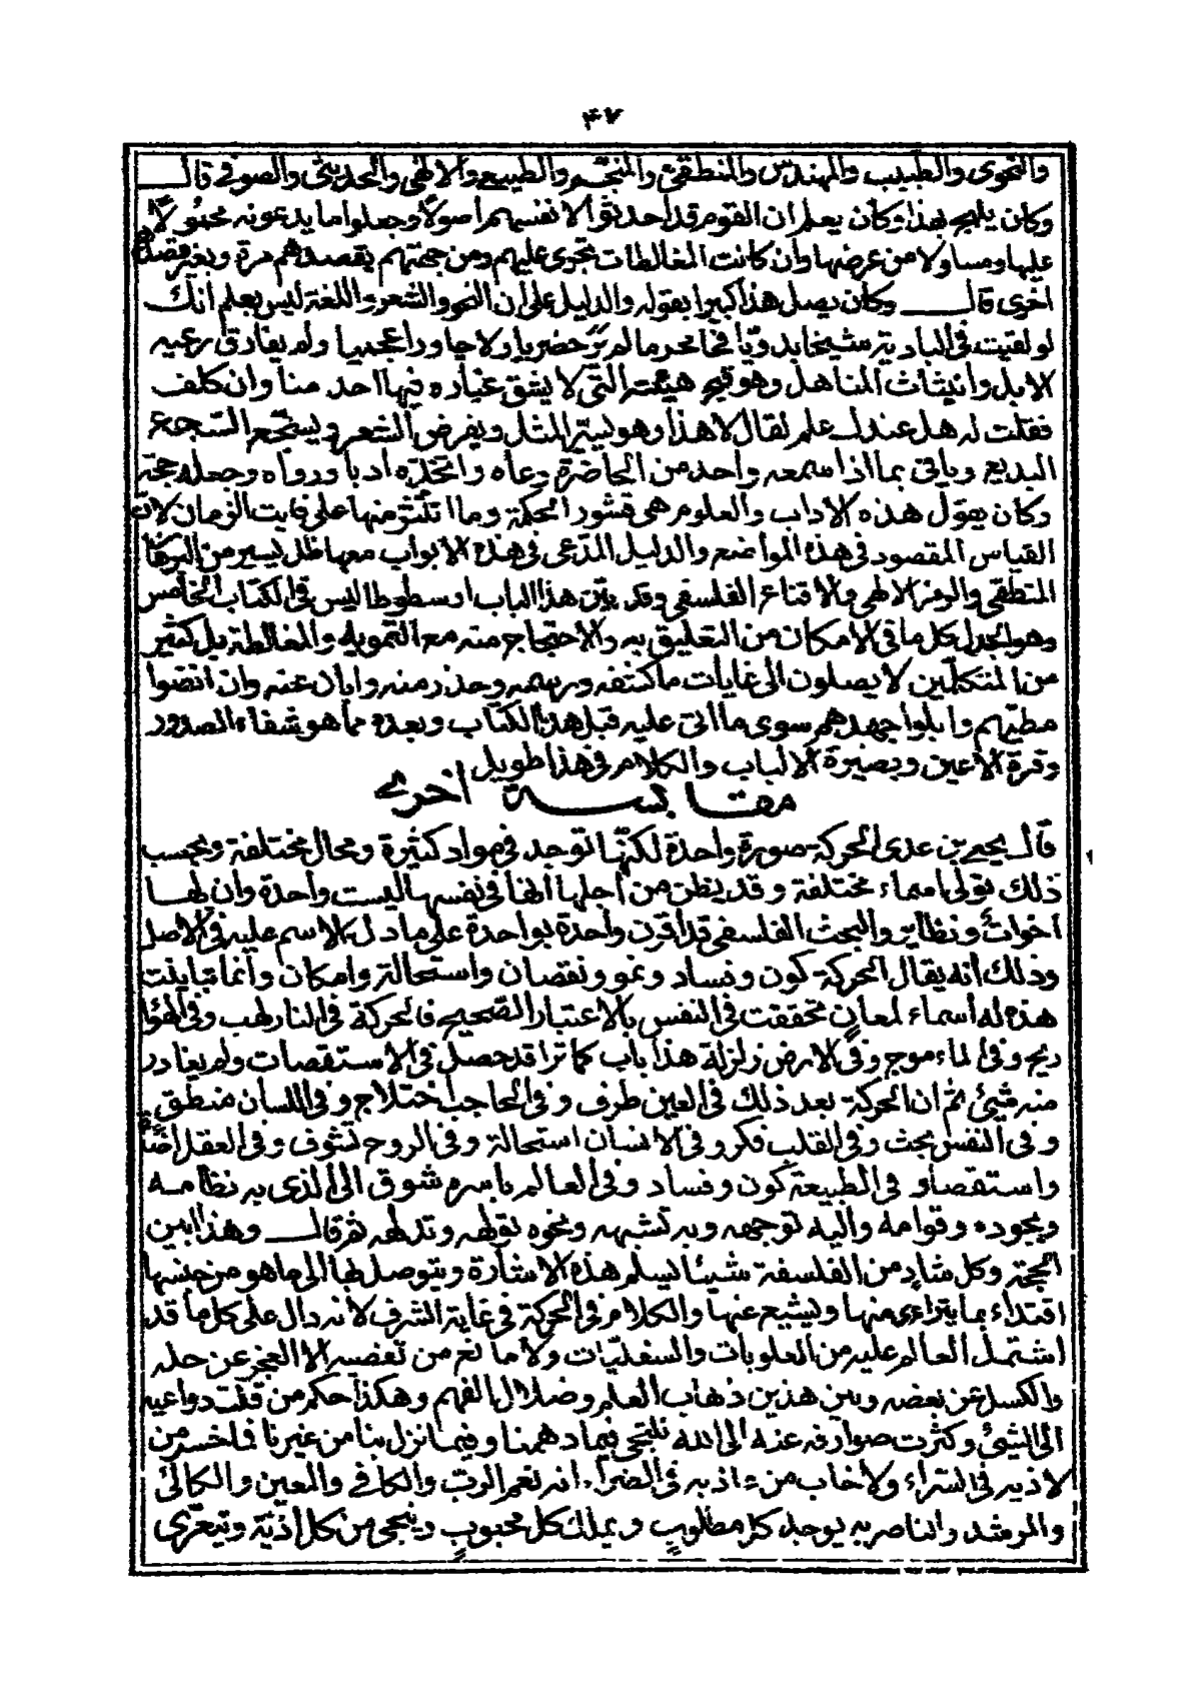 ٤٧
والنحوى والطبيب والمهندس والمنطقى والمنجم والطبيعى والالهى والحديثى والصوفى قال
وكان يلهج بهذا وكان يعلم ان القوم قد احدثوا لانفسهم اصولا وجعلوا ما يدعونه محمولا
عليها ومساولا من عرضها وان كانت المغالطات تجرى عليهم ومن جهتهم بقصدهم مرة وبغير قصدهم
اخرى قال وكان يصل هذا كثيرا بقوله والدليل على ان النحو والشعر واللغة ليس بعلم انك
لو لقيت فى البادية شيخا بدويا قحا محرما لم ير حضريا ولا جاور اعجميا ولم يفارق رعيه
الابل وانيثاث المناهل وهو فى هيئته التى لا يشق غباره فيها احد منا وان كلف
فقلت له هل عندك علم لقال لا هذا وهو يسير المثل ويقرض الشعر ويسجع السجع
البديع وياتى بما اذا سمعه واحد من الحاضرة وعاه واتخذه ادبا ورواه وجعله حجة
وكان يقول هذه الاداب والعلوم هى قشور الحكمة وما انتثر منها على فايت الزمان لان
القياس المقصود فى هذه المواضع والدليل المدعى فى هذه الابواب معها ظل يسير من البرهان
المنطقى والرمز الالهى والاقناع الفلسفى وقد بين هذا الباب ارسطوطاليس فى الكتاب الخامس
وهو الجدل كل ما فى الامكان من التعليق به والاحتجاج منه مع التمويه والمغالطة بل كثير
من المتكلمين لا يصلون الى غايات ما كشفه ورسمه وحذر منه وابان عنه وان انضوا
مطيهم وابلوا جهدهم سوى ما اتى عليه قبل هذا الكتاب وبعده مما هو شفاء الصدور
وقرة الاعين وبصيرة الالباب والكلام فى هذا طويل
مقابسة اخرى
قال يحيى بن عدى الحركة صورة واحدة لكنها توجد فى مواد كثيرة ومحال مختلفة وبحسب
ذلك تولى اسماء مختلفة وقد يظن من اجلها انها فى نفسها ليست واحدة وان لها
اخوات ونظاير والبحث الفلسفى قد اقرن واحدة بواحدة على ما دل الاسم عليه فى الاصل
وذلك انه يقال الحركة كون وفساد ونمو ونقصان واستحالة وامكان وانما تباينت
هذه له اسماء لمعان تحققت فى النفس بالاعتبار الصحيح فالحركة فى النار لهب وفى الهوا
ريح وفى الماء موج وفى الارض زلزلة هذا باب كما ترا قد حصل فى الاستقصات ولم يغادر
منه شيئ ثم ان الحركة بعد ذلك فى العين طرف وفى الحاجب اختلاج وفى اللسان منطق
وفى النفس بحث وفى القلب فكر وفى الانسان استحالة وفى الروح تشوف وفى العقل اضاة
واستقصاو فى الطبيعة كون وفساد وفى العالم باسره شوق الى الذى به نظامه
وبجوده وقوامه واليه توجهه وبه تشبهه ونحوه تولهه وتدلهه ثم قال وهذا بين
الحجة وكل شاد من الفلسفة شيئا يسلم هذه الاشارة ويتوصل لها الى ما هو من جنسها
اقتداء بما يتراءى منها ويشيع عنها والكلام فى الحركة فى غاية الشرف لانه دال على كل ما قد
اشتمل العالم عليه من العلويات والسفليات ولا مانع من تقصيه الا العجز عن جله
والكسل عن بعضه وبين هذين ذهاب العلم وضلال الفهم وهكذا حكم من قلت دواعيه
الى الشئ وكثرت صوارفه عنه الى الله نلتجى فيما دهمنا وفيما نزل بنا من غيرنا فما خسر من
لاذ به فى السراء ولا خاب من عاذ به فى الضراء انه نعم الرب والكافى والمعين والكالئ
والمرشد والناصر به يوجد كل مطلوب ويملك كل محبوب وينجى من كل اذية ويتعرى